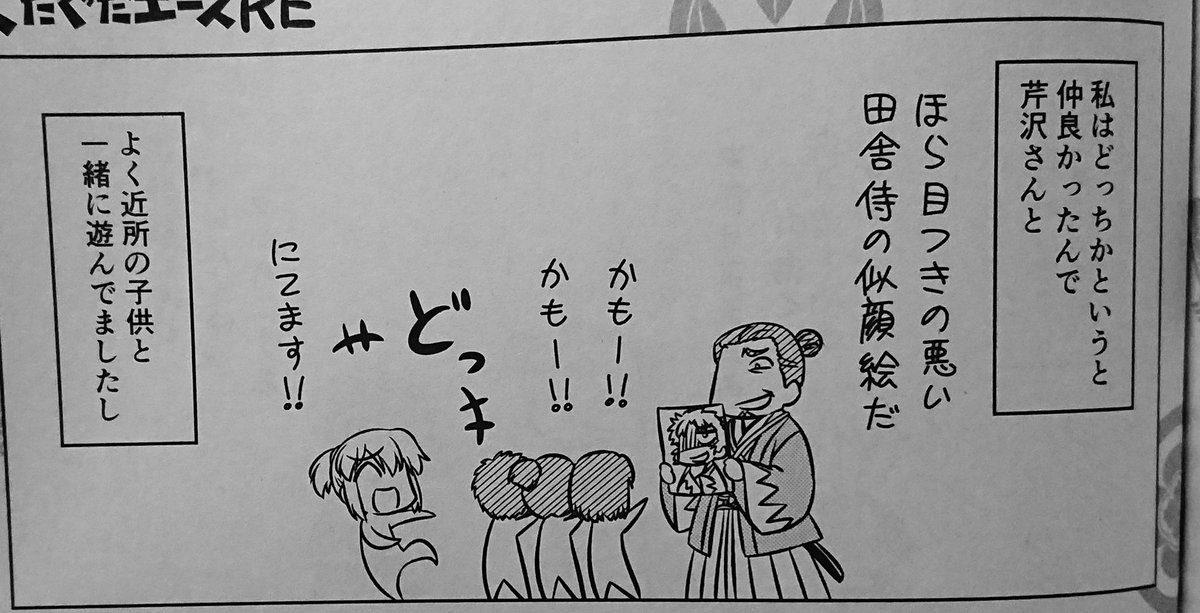 ぐだぐだエースRE
私はどっちかというと
仲良かったんで
芹沢さんと
ほら目つきの悪い
田舎侍の似顔絵だ
かもー!!
かもー!!
どっ
にてます!!
よく近所の子供と
一緒に遊んでましたし